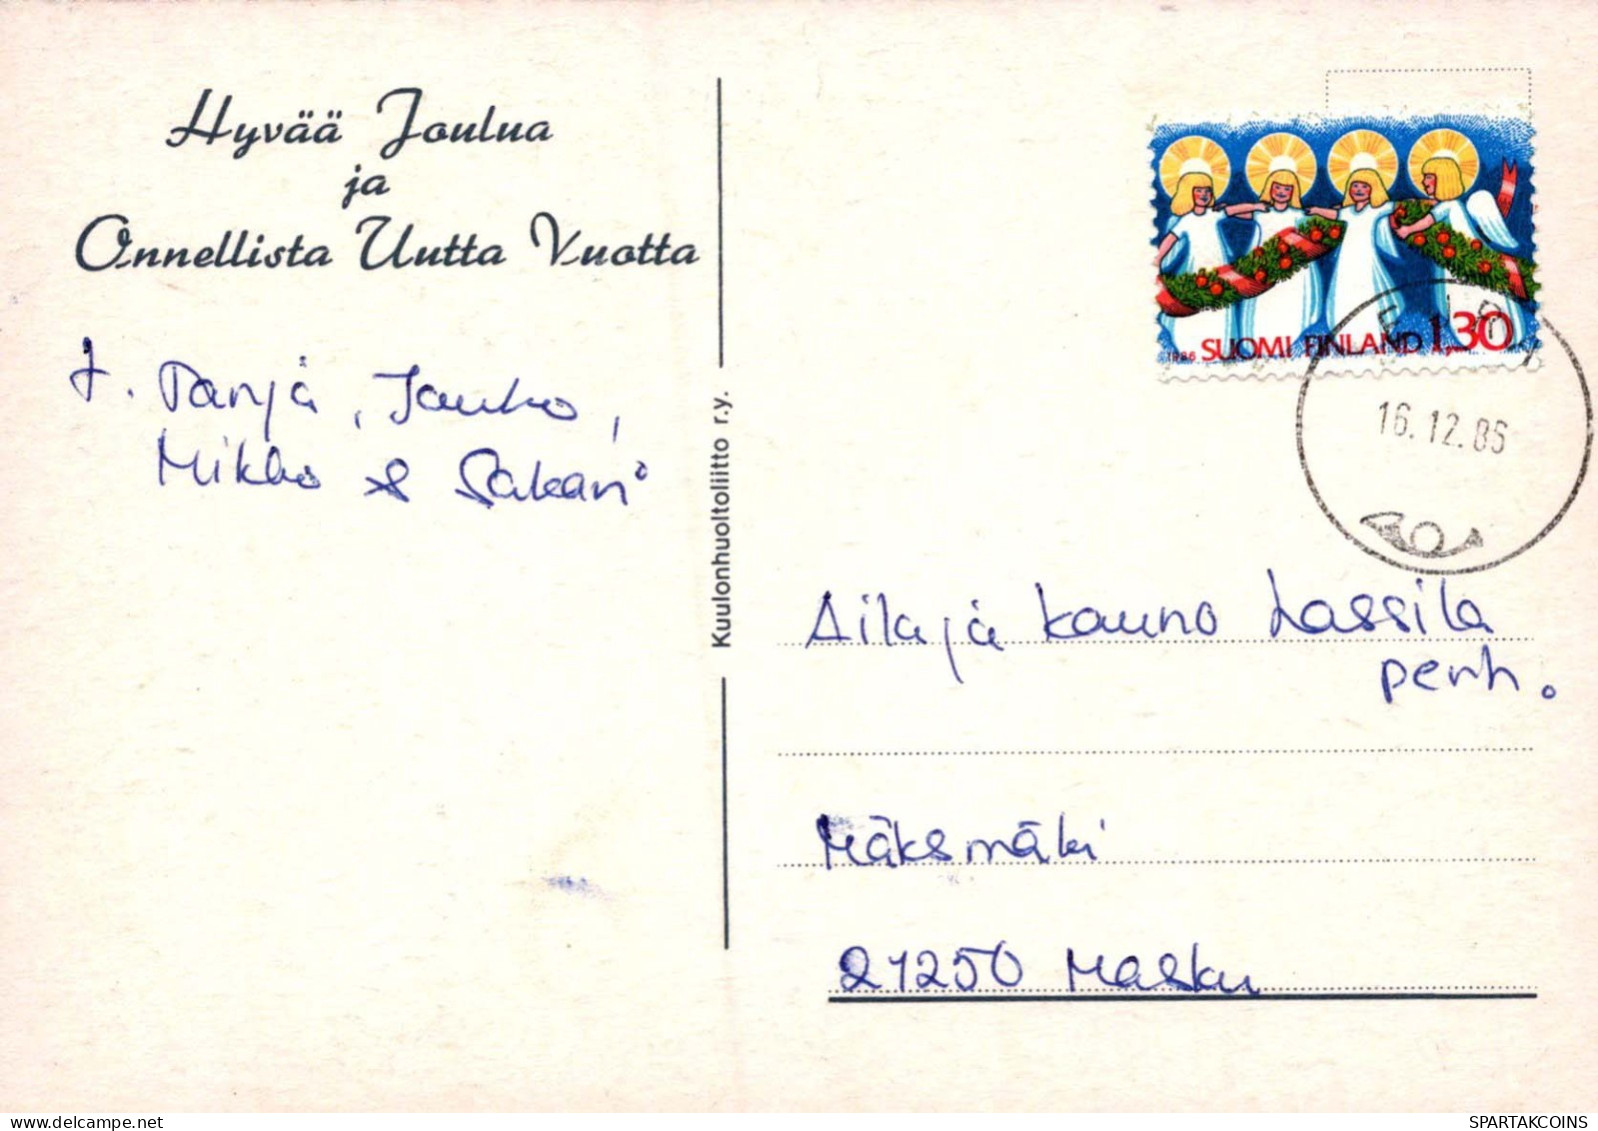 Hyvää Joulua
ja
Onnellista Uutta Vuotta
t. Tanja, Jouko,
Mikko & Sakari
Kuulonhuoltoliitto r.y.
1986 SUOMI FINLAND 1,30
16.12.86
Aila ja Kauno Lassila
perh.
Mäksmäki
21250 Masku
SPARTAKCOINS